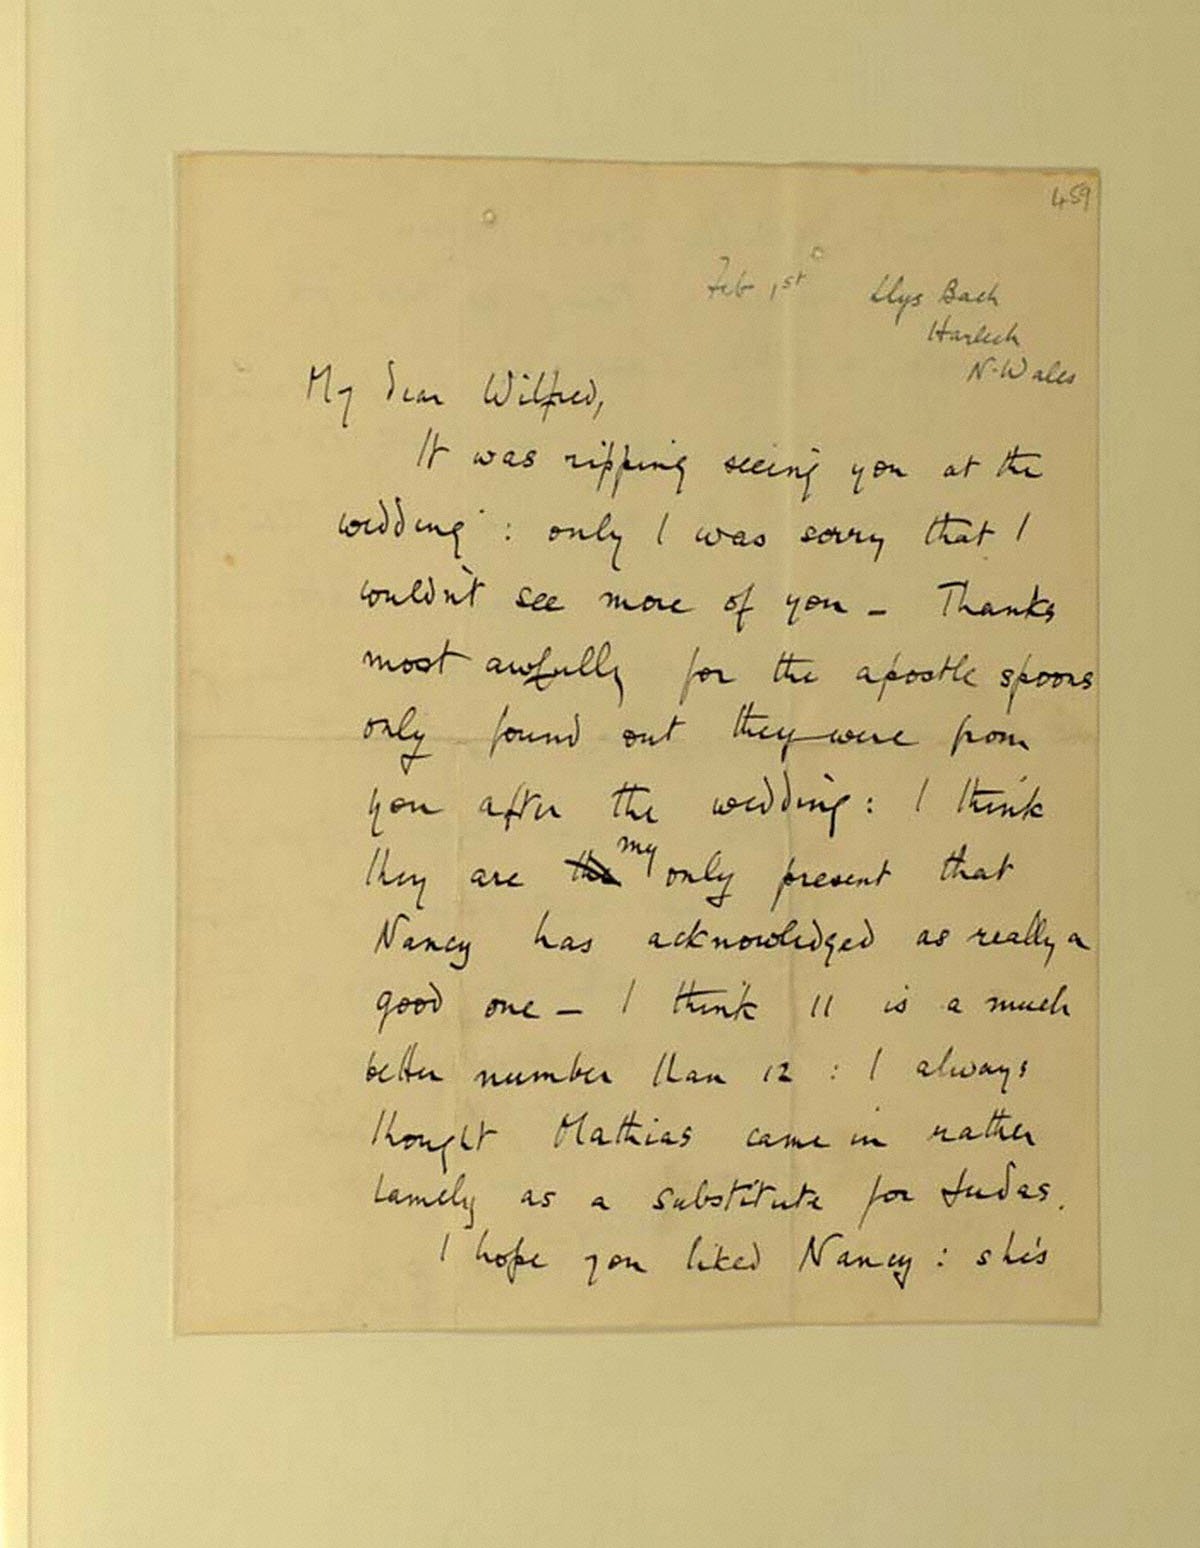 459
Feb 1st
Llys Bach
Harlech
N. Wales
My dear Wilfred,
It was ripping seeing you at the
wedding : only I was sorry that I
couldn't see more of you – Thanks
most awfully for the apostle spoons
only found out they were from
you after the wedding : I think
they are the my only present that
Nancy has acknowledged as really a
good one – I think 11 is a much
better number than 12 : I always
thought Mathias came in rather
lamely as a substitute for Judas.
I hope you liked Nancy : she's